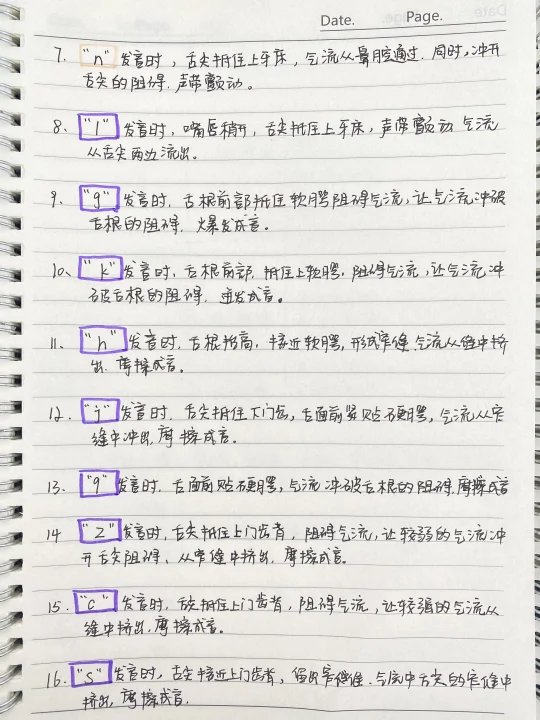 Date. Page.
7. "n" 发音时，舌尖抵住上牙床，气流从鼻腔通过，同时，冲开
舌尖的阻碍，声带颤动。
8、"l" 发音时，嘴唇稍开，舌尖抵住上牙床，声带颤动 气流
从舌尖两边流出。
9、"g" 发音时，舌根前部抵住软腭阻碍气流，让气流冲破
舌根的阻碍，爆发成音。
10、"k" 发音时，舌根前部，抵住上软腭，阻碍气流，让气流冲
破舌根的阻碍，迸发成音。
11、"h" 发音时，舌根抬高，接近软腭，形成窄缝，气流从缝中挤
出，摩擦成音。
12、"j" 发音时，舌尖抵住下门齿，舌面前紧贴硬腭，气流从窄
缝中冲出，摩擦成音。
13、"q" 发音时，舌面前贴硬腭，气流冲破舌根的阻碍，摩擦成音
14 "z" 发音时，舌尖抵住上门齿背，阻碍气流，让较弱的气流冲
开舌尖阻碍、从窄缝中挤出，摩擦成音。
15. "c" 发音时，抵住上门齿背，阻碍气流，让较强的气流从
缝中挤出，摩擦成音。
16. "s" 发音时，舌尖接近上门齿背，留出窄缝，气流舌尖的窄缝中
挤出，摩擦成音，